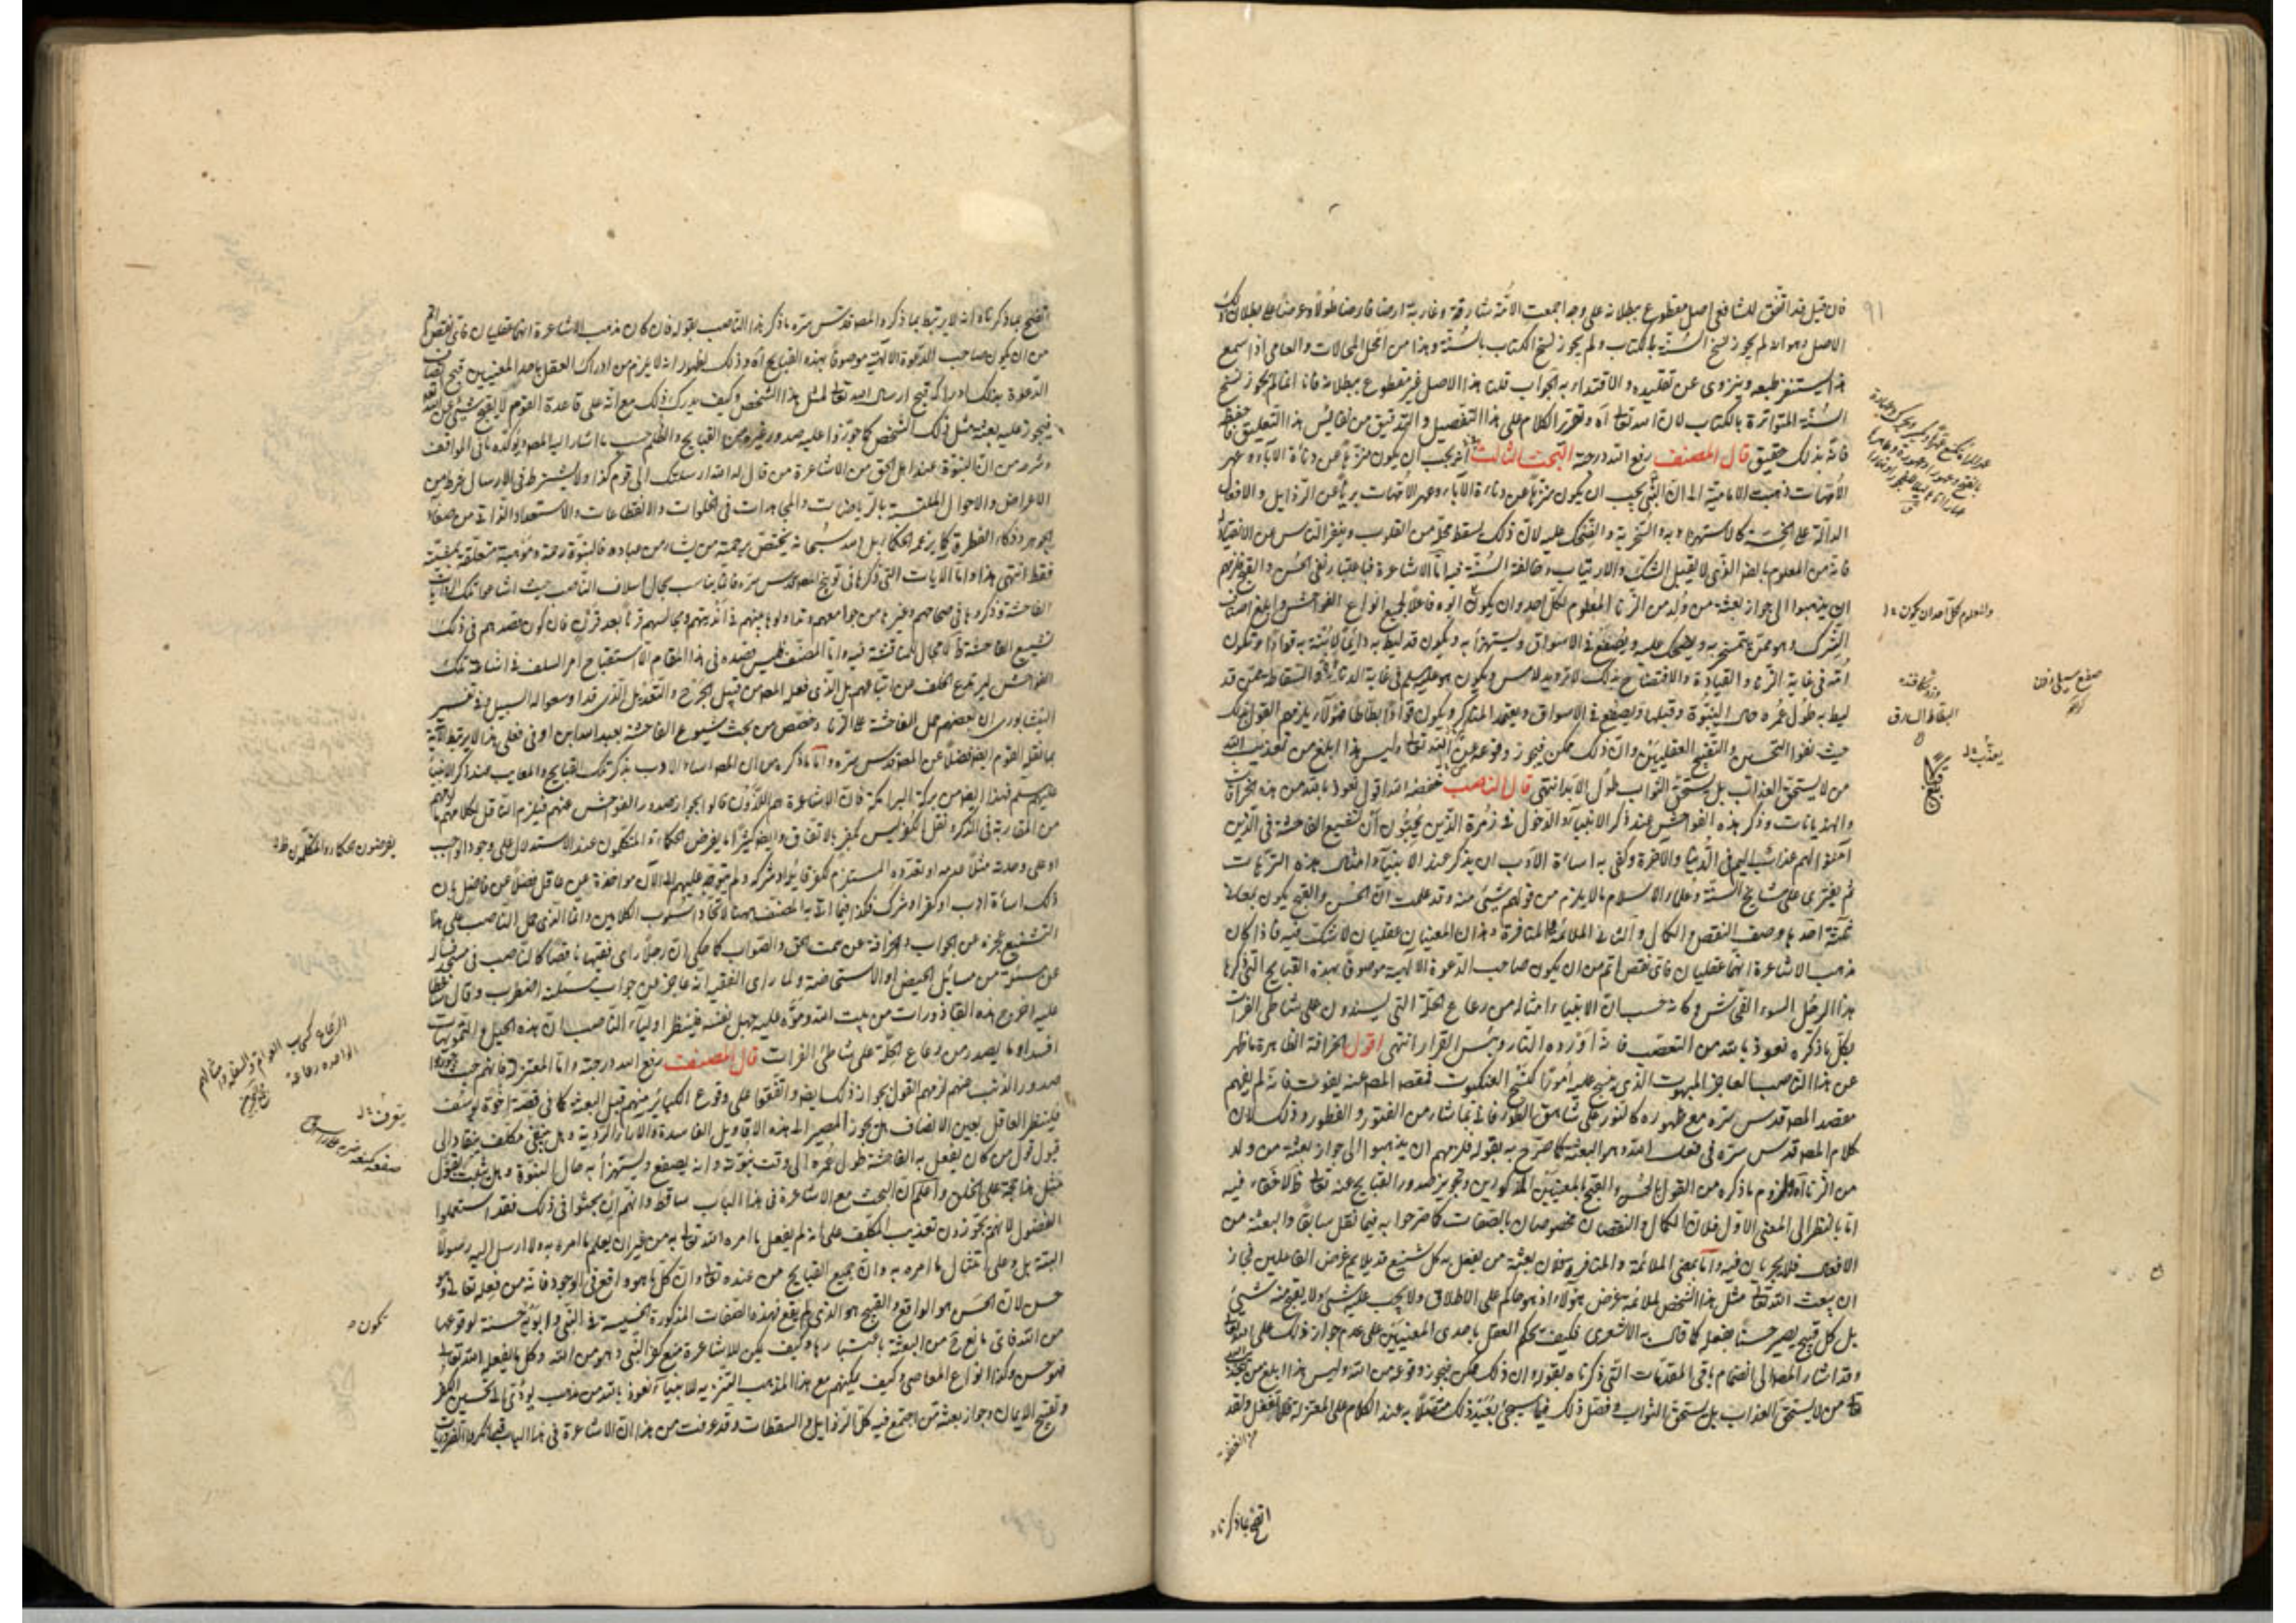 ٩١
فان قيل قد اتفق للشافعي اصل مقطوع ببطلانه على وجه اجمعت الامة شارقة وغاربة ارضا فارضا طولا وعرضا على بطلان ذلك
الاصل وهو انه لم يجوز نسخ السنة بالكتاب ولم يجوز نسخ الكتاب بالسنة وهذا من امحل المحالات والعامي اذا سمع
هذا يستنفر طبعه وينزوي عن تقليده والاقتداء به الجواب قلنا هذا الاصل غير مقطوع ببطلانه فانا انما لم نجوز نسخ
السنة المتواترة بالكتاب لان الله تعالى اه وتحرر الكلام على هذا التفصيل والتدقيق من نفائس هذا التعليق فاحفظ
فانه بذلك حقيق قال المصنف رفع الله درجته البحث الثالث في انه يجب ان يكون منزها عن دناءة الآباء وعهر
الامهات ذهبت الامامية الى ان النبي يجب ان يكون منزها عن دناءة الآباء وعهر الامهات بريئا عن الرذايل والافعال
الدالة على الخسة كالاستهزاء به والسخرية والضحك عليه لان ذلك يسقط محله من القلوب وينفر الناس عن الانقياد اليه
فانه من المعلوم بالضرورة الذي لا يقبل الشك والارتياب وخالفت السنة فيه اما الاشاعرة فباعتبار نفي الحسن والقبح فلزمهم
ان يذهبوا الى جواز بعثة من ولد من الزنا المعلوم لكل احد وان يكون ابوه فاعلا لجميع انواع الفواحش وابلغ اصناف
الشرك وهو ممن يتمسخر به ويضحك عليه ويصفع في الاسواق ويستهزأ به ويكون قد ليط به دائما لابنة به قوادا وتكون
امه في غاية الزنا والقيادة والافتضاح بذلك لا ترد يد لامس ويكون هو عليه السلم في غاية الدناءة والسقاطة ممن قد
ليط به طول عمره حال النبوة وقبلها ويصفع في الاسواق ويعتمد المناكير ويكون قوادا بطاطا فهؤلاء يلزمهم القول بذلك
حيث نفوا التحسين والتقبيح العقليين وان ذلك ممكن فيجوز وقوعه من الله تعالى وليس هذا ابلغ من تعذيب الله
من لا يستحق العذاب بل يستحق الثواب طول الابد انتهى قال الناصب خفضه الله اقول نعوذ بالله من هذه الخرافات
والهذيانات وذكر هذه الفواحش عند ذكر الانبياء والدخول في زمرة الذين يحبون ان تشيع الفاحشة في الذين
آمنوا لهم عذاب اليم في الدنيا والآخرة وكفى به اساءة الادب ان يذكر عند الانبياء امثال هذه الترهات
ثم يفتري على مشايخ السنة وعلماء الاسلام ما لا يلزم من قولهم شيئ منه وقد علمت ان الحسن والقبح يكون بمعان
ثلثة احدها وصف النقص والكمال والثاني الملائمة والمنافرة وهذان المعنيان عقليان لا شك فيه فاذا كان
مذهب الاشاعرة انهما عقليان فاي نقص اتم من ان يكون صاحب الدعوة الالهية موصوفا بهذه القبايح التي ذكرها
هذا الرجل السوء الفحاش وكانه حسب ان الانبياء امثاله من رعاع الحلة الذين يفسدون على شاطئ الفرات
بكل ما ذكره نعوذ بالله من التعصب فانه اورده النار وبئس القرار انتهى اقول الخرافة الظاهرة ما ظهر
عن هذا الناصب العاجز المبهوت الذي نسج عليه امورا كنسج العنكبوت فمقصد المص عنه يفوت فانه لم يفهم
مقصد المص قدس سره مع ظهوره كالنور على شاهق الطور فاتى بما شاء من الفتور والفطور وذلك لان
كلام المص قدس سره في فعل الله وهو البعثة كما صرح به بقوله فلزمهم ان يذهبوا الى جواز بعثة من ولد
من الزنا اه ولزوم ما ذكره من القول بالحسن والقبح بالمعنيين المذكورين وتجويز صدور القبايح عنه تعالى ظاهر لاخفاء فيه
اما بالنظر الى المعنى الاول فلان الكمال والنقصان مخصوصان بالصفات كما صرحوا به فيما نقل سابقا والبعثة من
الافعال فلا يجريان فيه واما بمعنى الملائمة والمنافرة فلان بعثة من يفعل به كل شنيع قد يلايم غرض الفاعلين فجاز
ان يبعث الله تعالى مثل هذا الشخص لملائمة غرض هؤلاء اذ هو حاكم على الاطلاق ولا يجب عليه شيئ ولا يقبح منه شيئ
بل كل قبيح يصير حسنا بفعله كما قاله الاشعري فكيف يحكم العقل باحدى المعنيين على عدم جواز ذلك على الله تعالى
وقد اشار المص الى انضمام باقي المقدمات التي ذكرناه بقوله وان ذلك ممكن فيجوز وقوعه من الله وليس هذا ابلغ من تعذيب الله
تعالى من لا يستحق العذاب بل يستحق الثواب وفصل ذلك فيما سيجئ بعيد ذلك متصلا به عند الكلام على المعتزلة فلا تغفل ولقد
اتضح بما ذكرناه
والمعلوم لكل احد ان يكون
صفع سيلي زدن
السقاط السارق
يعذب
اتضح بما ذكرناه انه لا يرتبط بما ذكره المص قدس سره ما ذكر هذا الناصب بقوله فان كان مذهب الاشاعرة انهما عقليان فاي نقص اتم
من ان يكون صاحب الدعوة الالهية موصوفا بهذه القبايح اه وذلك لظهور انه لا يلزم من ادراك العقل باحد المعنيين قبح اتصاف
الدعوة بذلك ادراكه قبح ارسال الله تعالى لمثل هذا الشخص وكيف يدرك ذلك مع انه على قاعدة القوم لا يقبح شيئ عن الله تعالى
فيجوز عليه بعثة مثل ذلك الشخص كما جوزوا عليه صدور غيره من القبايح والظلم حسب ما اشار اليه المص ويؤكده ما في المواقف
وشرحه من ان النبوة عند اهل الحق من الاشاعرة من قال له الله ارسلتك الى قوم كذا ولا يشترط في الارسال شرط من
الاعراض والاحوال المكتسبة بالرياضات والمجاهدات في الخلوات والانقطاعات والاستعداد الذاتي من صفاء
الجوهر وذكاء الفطرة كما يزعمه الحكماء بل الله سبحانه يختص برحمته من يشاء من عباده فالنبوة رحمة وموهبة متعلقة بمشيته
فقط انتهى هذا واما الآيات التي ذكرها في توبيخ المص قدس سره فانما يناسب بحال اسلاف الناصب حيث اشاعوا تلك الروايات
الفاحشة وذكروها في صحاحهم وغيرها من جوامعهم وتداولوها بينهم في انديتهم ومجالسهم قرنا بعد قرن فان كون مقصدهم في ذلك
تشييع الفاحشة مما لا مجال للمناقشة فيه واما المصنف فليس قصده في هذا المقام الا استقباح امر السلف في اشاعة تلك
الفواحش ليرتدع الخلف عن اتباعهم بل الذي فعله المص من قبيل الجرح والتعديل الذي قد اوسعوا له السبيل وفي تفسير
النيشابوري ان بعضهم حمل الفاحشة على الزنا
بما نقل القوم ايضا فضلا عن المص قدس سره واما ما ذكره من ان المص اساء الادب بذكر تلك القبايح والمعايب عند ذكر الانبياء
من المقاربة في الذكر ونقل الكفر ليس بكفر بالاتفاق وايضا كثيرا ما يفرض الحكماء او المتكلمون عند الاستدلال على وجود الواجب
او على وحدته مثلا عدمه او تعدده المستلزم لكفر قايله او شركه ولم يتوجه عليهم الى الآن مؤاخذة عن عاقل فضلا عن فاضل بان
ذلك اساءة ادب او كفر او شرك فكذا فيما اتى به المصنف ههنا لاتحاد اسلوب الكلامين وانما الذي حمل الناصب على هذا
التشنيع عجزه عن الجواب وانحرافه عن سمت الحق والصواب كما حكي ان رجلا رأى فقيها ناقصا كالناصب في مسجد فسأله
عن مسئلة من مسائل الحيض او الاستحاضة ولما رأى الفقيه انه عاجز عن جواب مسئلته اضطرب وقال
عليه اخرج هذه القاذورات من بيت الله وموه عليه جهل نفسه فلينظر اولياء الناصب ان هذه الحيل والتمويهات
افسد او ما يصدر من رعاع الحلة على شاطئ الفرات قال المصنف رفع الله درجته واما المعتزلة فانهم حيث جوزوا
صدور الذنب عنهم لزمهم القول بجواز ذلك ايضا واتفقوا على وقوع الكبائر منهم قبل البعثة كما في قصة اخوة يوسف
فلينظر العاقل بعين الانصاف هل يجوز المصير الى هذه الاقاويل الفاسدة والآراء الردية وهل يبقى مكلف ينقاد الى
قبول قول من كان يفعل به الفاحشة طول عمره الى وقت نبوته وانه يصفع ويستهزأ به حال النبوة وهل يثبت بقول
مثل هذا حجة على الخلق واعلم ان البحث مع الاشاعرة في هذا الباب ساقط وانهم ان بحثوا في ذلك فقد استعملوا
الفضول لانهم يجوزون تعذيب المكلف على انه لم يفعل ما امره الله تعالى به من غير ان يعلم ما امره به ولا ارسل اليه رسولا
البتة بل وعلى امتثال ما امره به وان جميع القبايح من عنده تعالى وان كل ما هو واقع في الوجود فانه من فعله تعالى وهو
حسن لان الحسن هو الواقع والقبيح هو الذي لم يقع فهذه الصفات المذكورة الخسيسة في النبي وابويه حسنة لوقوعها
من الله فاي مانع ح من البعثة باعتبارها وكيف يمكن للاشاعرة منع كفر النبي وهو من الله وكل ما يفعله الله تعالى
فهو حسن وكذا انواع المعاصي وكيف يمكنهم مع هذا المذهب التنزيه للانبياء نعوذ بالله من مذهب يؤدي الى تحسين الكفر
وتقبيح الايمان وجواز بعثة من اجتمع فيه كل الرذايل والسقطات وقد عرفت من هذا ان الاشاعرة في هذا الباب قد انكروا الضروريات
يفرضون الحكماء والمتكلمون
تكون